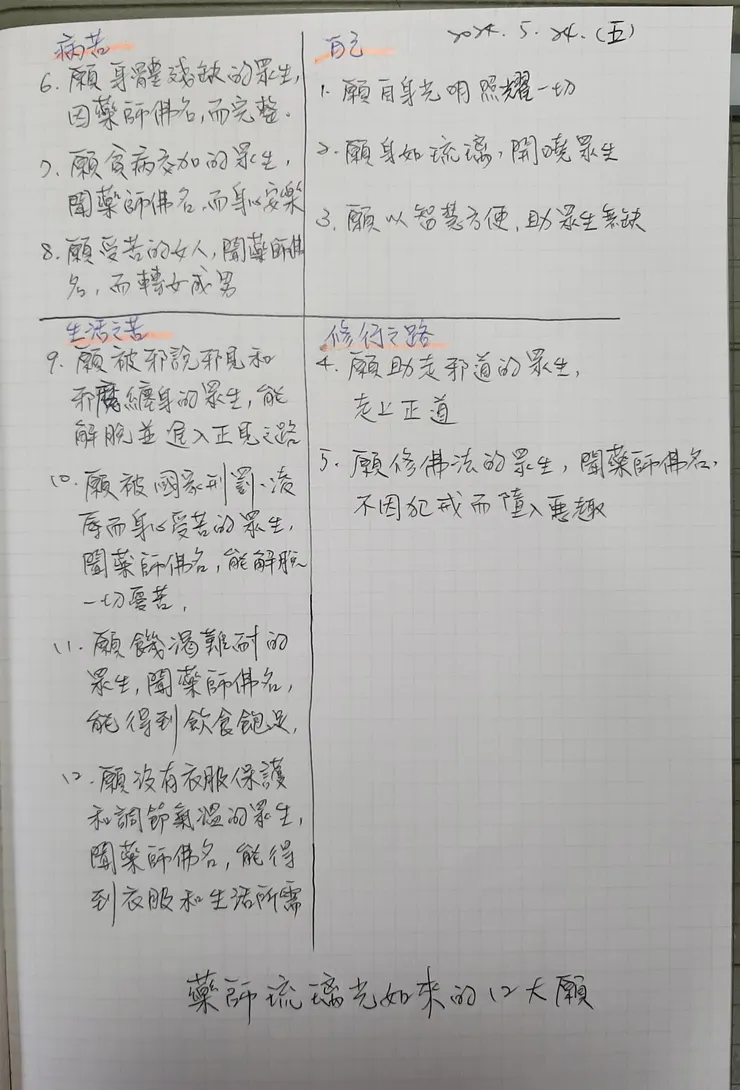 2024.5.24.(五)
病苦
6. 願身體殘缺的眾生,
因藥師佛名,而完整.
7. 願貧病交加的眾生,
聞藥師佛名,而身心安樂
8. 願受苦的女人,聞藥師佛
名,而轉女成男
自己
1. 願自身光明照耀一切
2. 願身如琉璃,開曉眾生
3. 願以智慧方便,助眾生無缺
生活之苦
9. 願被邪說邪見和
邪魔纏身的眾生,能
解脫並進入正見之路
10. 願被國家刑罰、凌
辱而身心受苦的眾生,
聞藥師佛名,能解脫
一切憂苦,
11. 願饑渴難耐的
眾生,聞藥師佛名,
能得到飲食飽足,
12. 願沒有衣服保護
和調節氣溫的眾生,
聞藥師佛名,能得
到衣服和生活所需
修行之路
4. 願助走邪道的眾生,
走上正道
5. 願修佛法的眾生,聞藥師佛名,
不因犯戒而墮入惡趣
藥師琉璃光如來的12大願